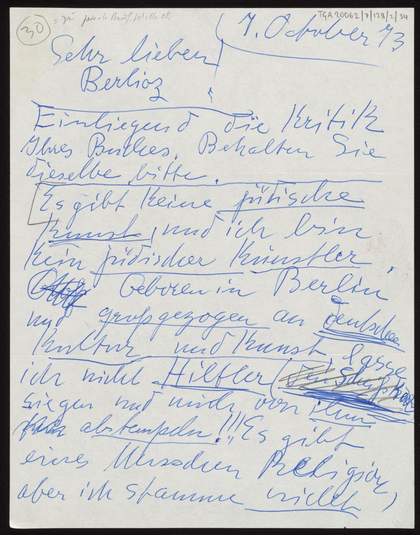 30
TGA 20062/
7. October 73
Sehr lieber
Berlioz
Einliegend die Kritik
Ihres Buches. Behalten Sie
dieselbe bitte.
Es gibt keine jüdische
Kunst, und ich bin
kein jüdischer Künstler
Geboren in Berlin
und großgezogen an deutscher
Kultur und Kunst, lasse
ich nicht Hiltler
siegen und mich von ihm
abstempeln!!! Es gibt
eines Menschen Religion,
aber ich stamme nicht